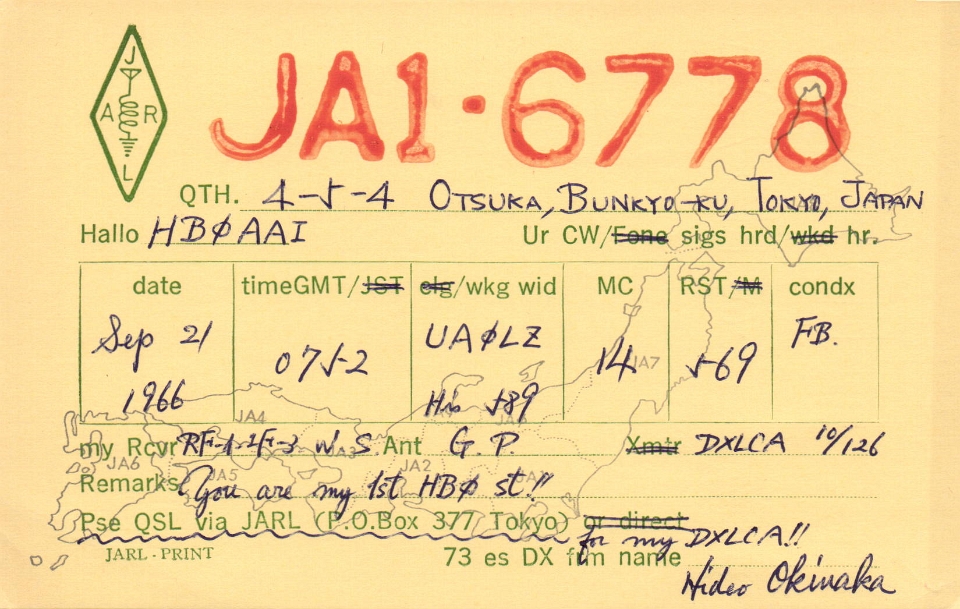 J
A R
L
JA1·6778
QTH. 4-5-4 OTSUKA, BUNKYO-KU, TOKYO, JAPAN
Hallo HBØAAI Ur CW/Fone sigs hrd/wkd hr.
date timeGMT/JST clg/wkg wid MC RST/M condx
Sep 21 1966 0752 UAØLZ His 589 14 569 FB.
JA7
JA4
my Rcvr RF-1-IF-3 W.S. Ant G.P. Xmtr DXLCA 10/126
JA6 JA5 JA3 JA2
Remarks You are my 1st HBØ st!!
Pse QSL via JARL (P.O.Box 377 Tokyo) or direct
for my DXLCA!!
JARL·PRINT 73 es DX frm name
Hideo Okinaka